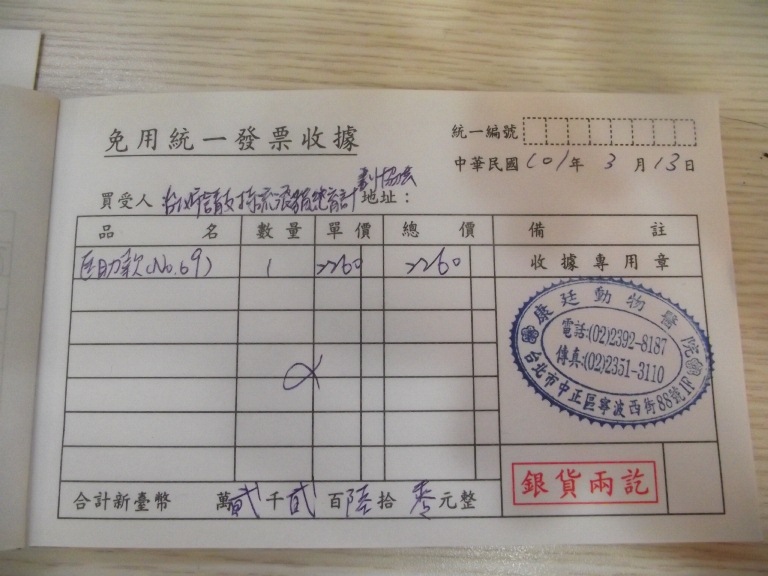 免用統一發票收據
統一編號
中華民國 101 年 3 月 13 日
買受人
地址：
品名 數量 單價 總價 備註
助款(No.69) 1 2260 2260
收據專用章
康廷動物醫院
電話:(02)2392-8187
傳真:(02)2351-3110
台北市中正區寧波西街88號1F
合計新臺幣 萬貳千貳百陸拾零元整
銀貨兩訖